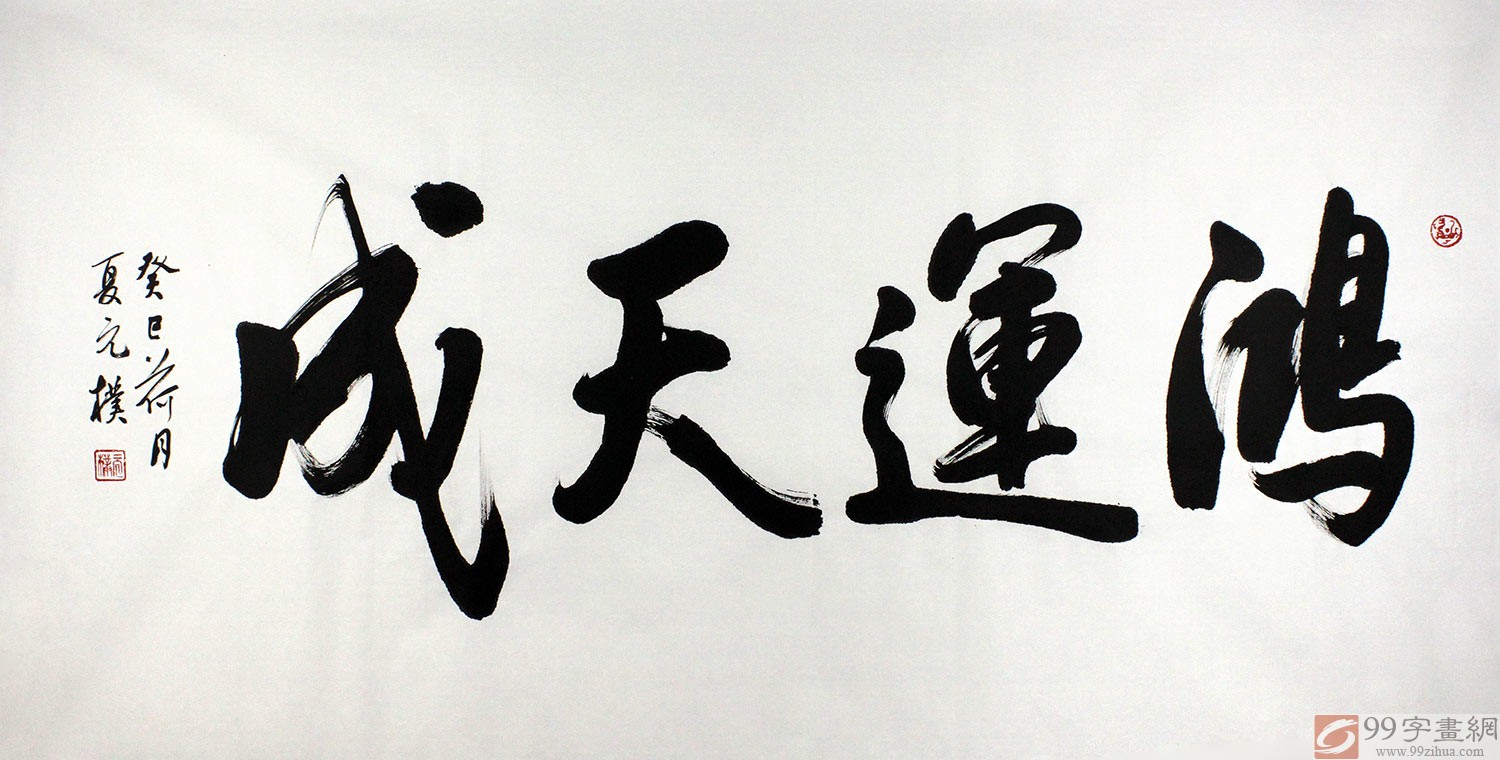 鴻運天成
癸巳荷月
夏元樸
99字畫網
www.99zihua.com